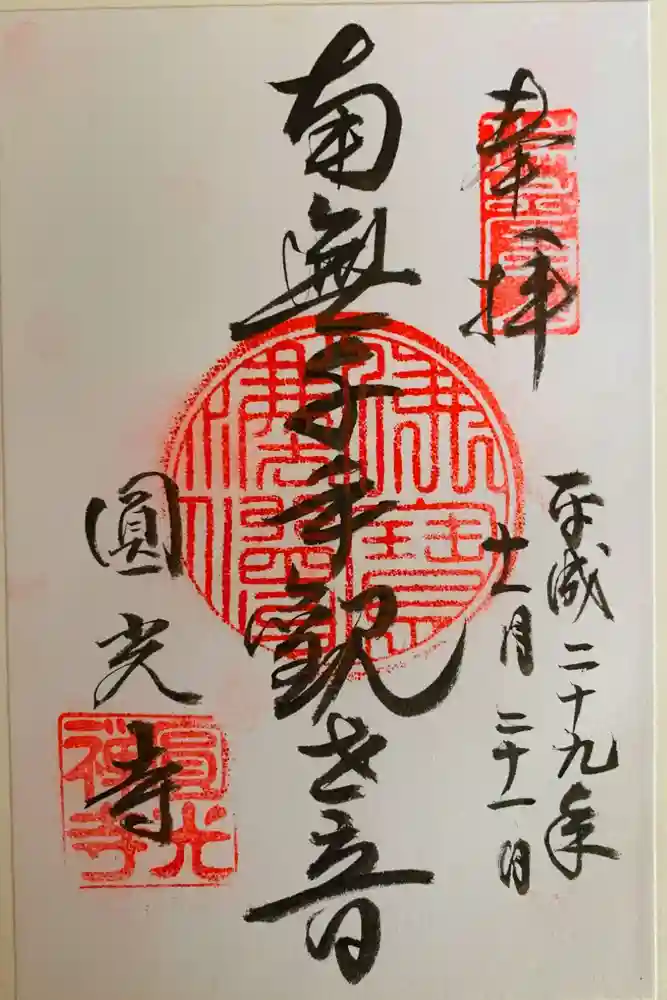 奉拝
平成二十九年
十一月二十一日
南無千手観世音
圓光寺
圓光
禅寺